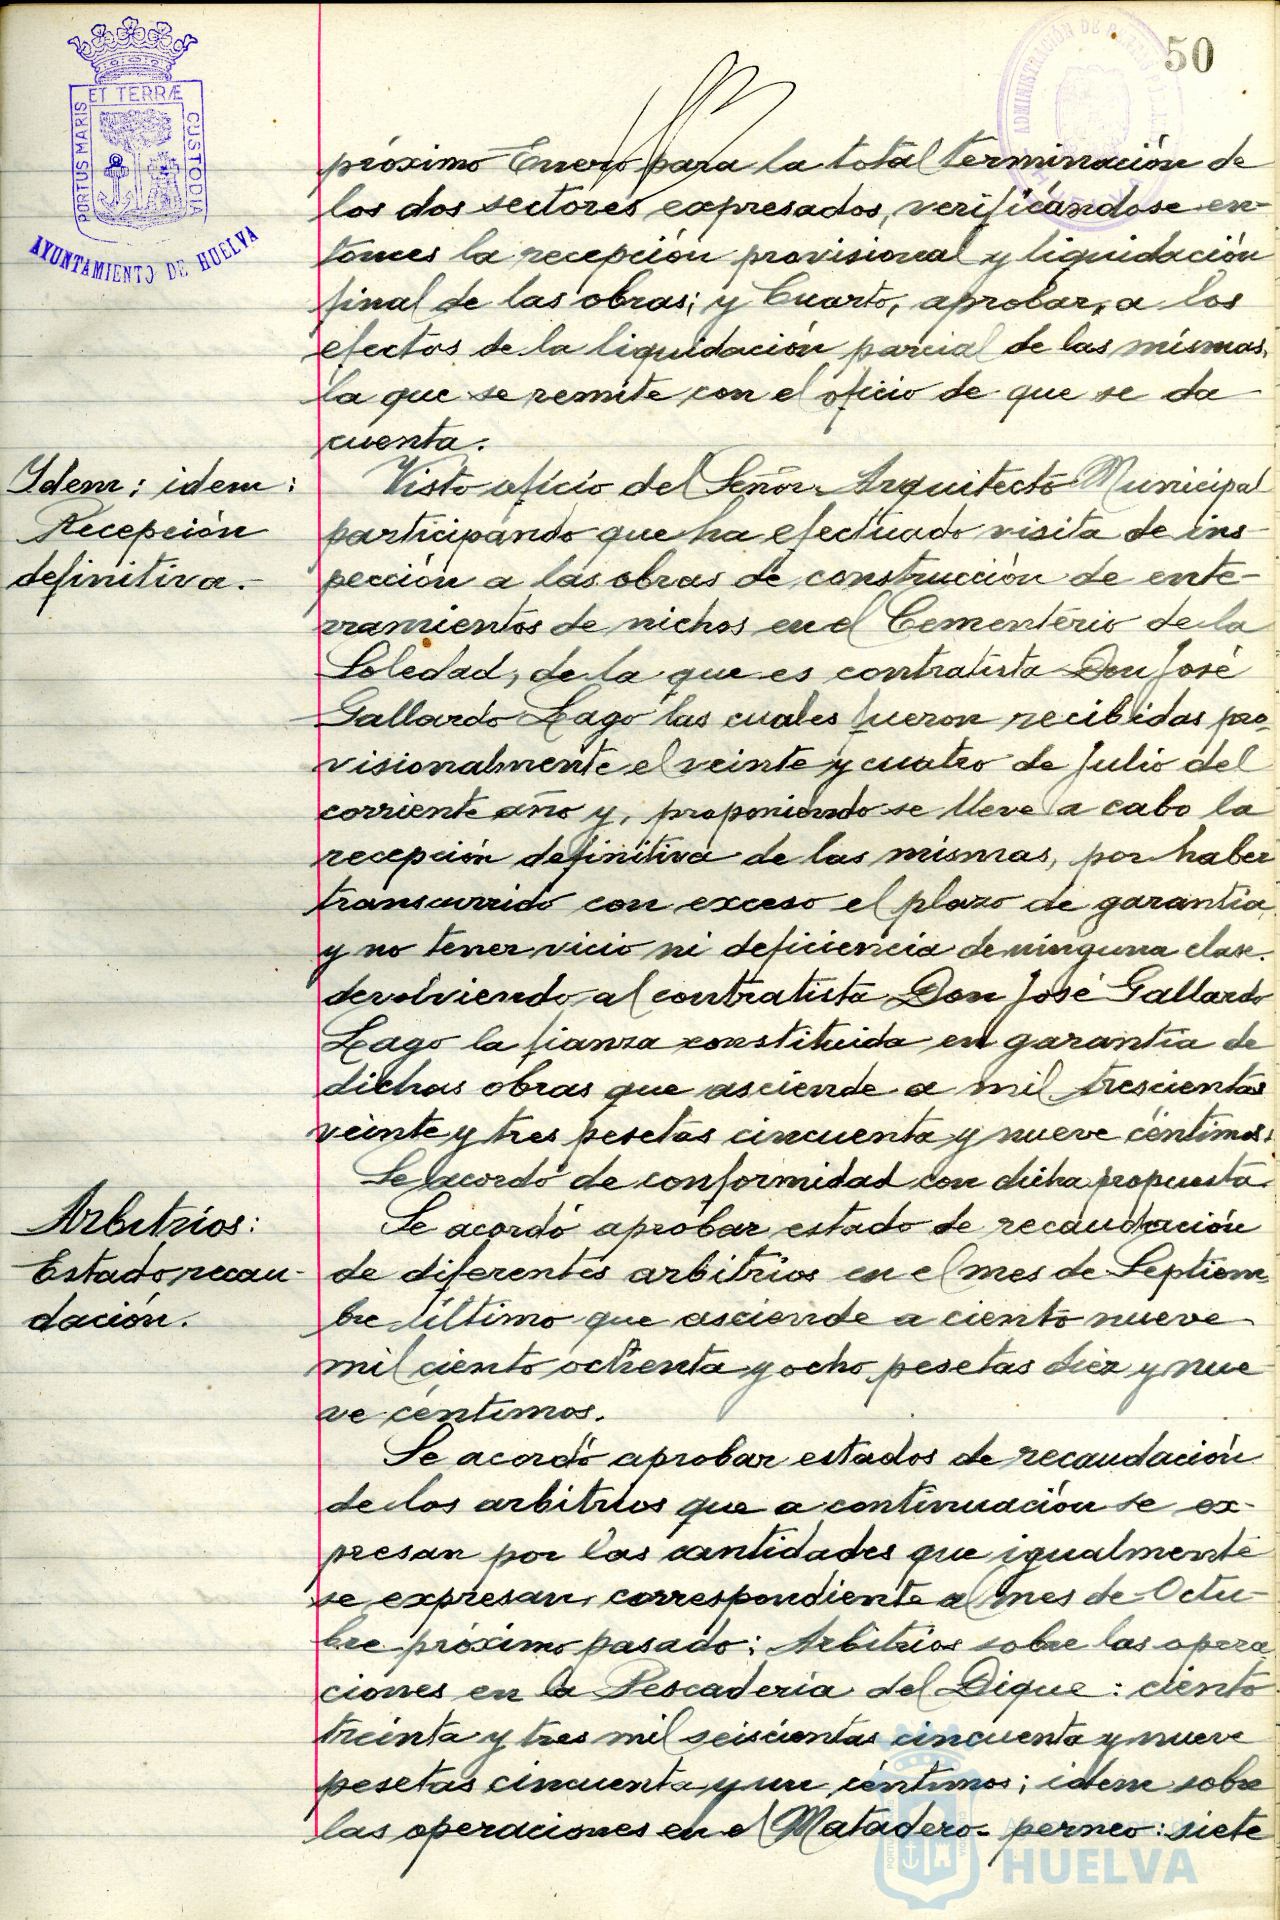 50
ET TERRÆ
PORTUS MARIS
CUSTODIA
AYUNTAMIENTO DE HUELVA
próximo Enero para la total terminación de
los dos sectores expresados, verificándose en-
tonces la recepción provisional y liquidación
final de las obras; y Cuarto, aprobar, a los
efectos de la liquidación parcial de las mismas,
la que se remite con el oficio de que se da
cuenta.
Idem: idem:
Recepción
definitiva.-
Visto oficio del Señor Arquitecto Municipal
participando que ha efectuado visita de ins-
pección a las obras de construcción de ente-
rramientos de nichos en el Cementerio de la
Soledad, de la que es contratista Don José
Gallardo Lago las cuales fueron recibidas pro-
visionalmente el veinte y cuatro de Julio del
corriente año y, proponiendo se lleve a cabo la
recepción definitiva de las mismas, por haber
transcurrido con exceso el plazo de garantía
y no tener vicio ni deficiencia de ninguna clase.
devolviendo al contratista Don José Gallardo
Lago la fianza constituida en garantía de
dichas obras que asciende a mil trescientas
veinte y tres pesetas cincuenta y nueve céntimos:
Se acordó de conformidad con dicha propuesta.
Arbitrios:
Estado recau-
dación.
Se acordó aprobar estado de recaudación
de diferentes arbitrios en el mes de Septiem-
bre último que asciende a ciento nueve
mil ciento ochenta y ocho pesetas diez y nue
ve céntimos.
Se acordó aprobar estados de recaudación
de los arbitrios que a continuación se ex-
presan por las cantidades que igualmente
se expresan, correspondiente al mes de Octu-
bre próximo pasado: Arbitrios sobre las opera
ciones en la Pescadería del Dique: ciento
treinta y tres mil seiscientas cincuenta y nueve
pesetas cincuenta y un céntimos; idem sobre
las operaciones en el Matadero- perneo: siete
HUELVA